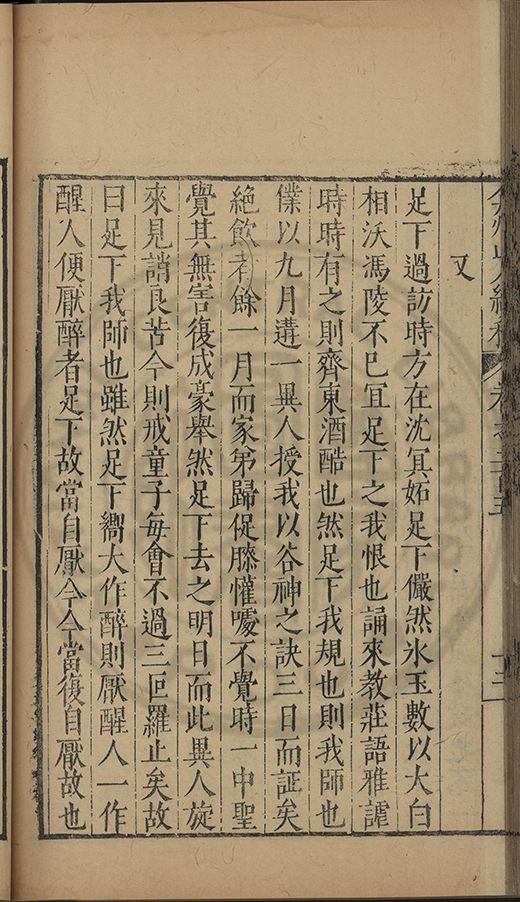 又
足下過訪時方在沈冥妬足下儼然氷玉數以大白
相沃馮陵不已冝足下之我恨也誦來教莊語雅謔
時時有之則齊東酒酷也然足下我規也則我師也
僕以九月遘一異人授我以谷神之訣三日而証矣
絶飲者餘一月而家弟歸促膝懽噱不覺時一中聖
覺其無害復成豪舉然足下去之明日而此異人旋
來見誚良苦今則戒童子毎會不過三叵羅止矣故
曰足下我師也雖然足下嚮大作醉則厭醒人一作
醒人便厭醉者足下故當自厭今今當復自厭故也